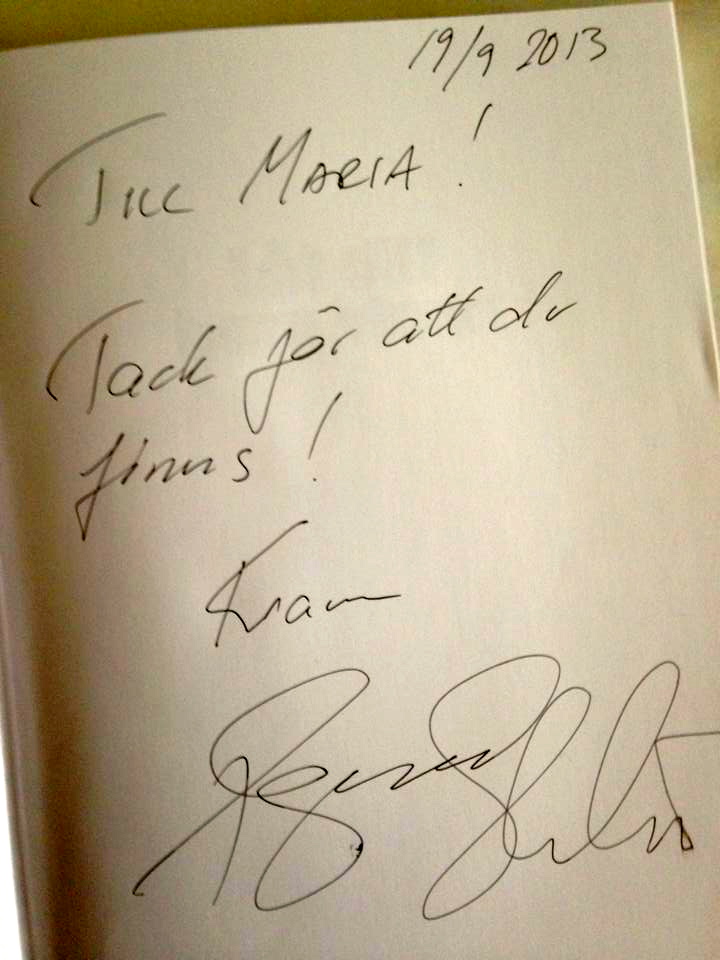 19/9 2013
TILL MARIA!
Tack för att du
finns!
Kram